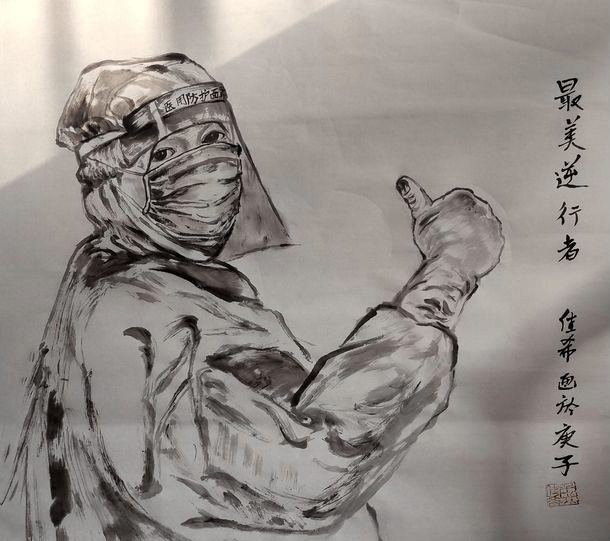 医用防护面
最美逆行者
佳希画於庚子